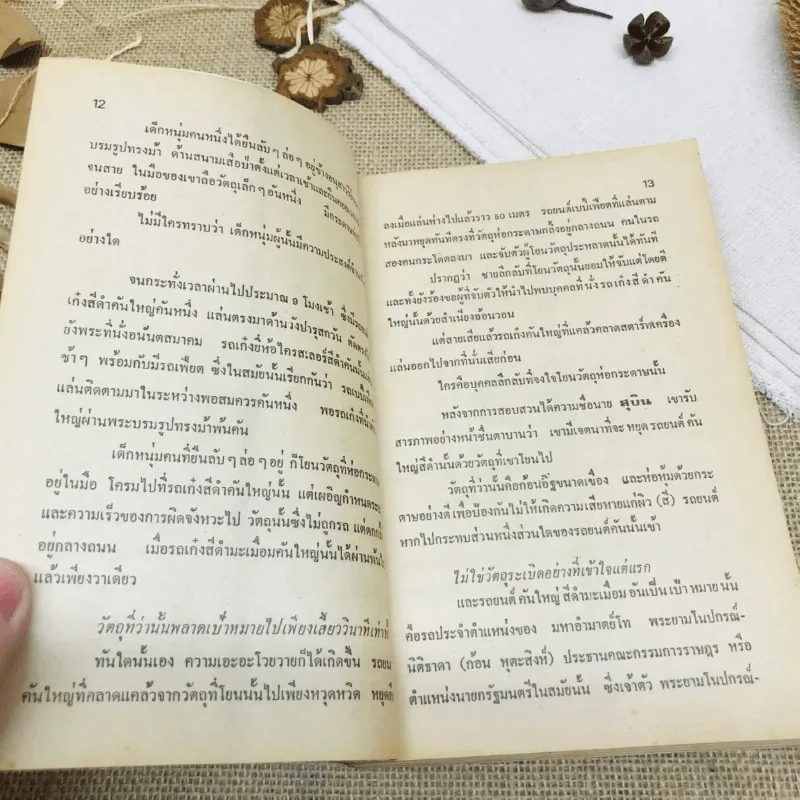 12
เด็กหนุ่มคนหนึ่งได้ยืนลับๆ ล่อๆ อยู่ข้างอนุสาวรีย์
บรมรูปทรงม้า ด้านสนามเสือป่าตั้งแต่เวลาเช้าและยืนคอย
จนสาย ในมือของเขาถือวัตถุเล็กๆ อันหนึ่ง มีกระดาษห่อ
อย่างเรียบร้อย
ไม่มีใครทราบว่า เด็กหนุ่มผู้นั้นมีความประสงค์
อย่างใด
จนกระทั่งเวลาผ่านไปประมาณ 9 โมงเช้า ซึ่งมีรถ
เก๋งสีดำคันใหญ่คันหนึ่ง แล่นตรงมาด้านวังปารุสกวัน
ยังพระที่นั่งอนันตสมาคม รถเก๋งยี่ห้อไครสเลอร์สีดำคันนั้น
ช้าๆ พร้อมกับมีรถเฟี๊ยต ซึ่งในสมัยนั้นเรียกกันว่า รถเบบี้
แล่นติดตามมาในระหว่างพอสมควรคันหนึ่ง พอรถเก๋งที่
ใหญ่ผ่านพระบรมรูปทรงม้าพ้นคัน
เด็กหนุ่มคนที่ยืนลับๆ ล่อๆ อยู่ ก็โยนวัตถุที่ห่อกระดาษ
อยู่ในมือ โครมไปที่รถเก๋งสีดำคันใหญ่นั้น แต่เผอิญกำหนดระยะ
และความเร็วของการผิดจังหวะไป วัตถุนั้นซึ่งไม่ถูกรถ แต่ตกกลิ้ง
อยู่กลางถนน เมื่อรถเก๋งสีดำมะเมื่อมคันใหญ่นั้นได้ผ่านพ้นไป
แล้วเพียงวาเดียว
วัตถุที่ว่านั้นพลาดเป้าหมายไปเพียงเสี้ยววินาทีเท่านั้น
ทันใดนั้นเอง ความเอะอะโวยวายก็ได้เกิดขึ้น รถยนต์
คันใหญ่ที่คลาดแคล้วจากวัตถุที่โยนนั้นไปเพียงหวุดหวิด หยุดกึก
13
ลงเมื่อแล่นห่างไปแล้วราว 50 เมตร รถยนต์เบบี้เฟียตที่แล่นตาม
หลังมาหยุดทันทีตรงที่วัตถุห่อกระดาษกลิ้งอยู่กลางถนน คนในรถ
สองคนกระโดดลงมา และจับตัวผู้โยนวัตถุประหลาดนั้นได้ทันที
ปรากฏว่า ชายลึกลับที่โยนวัตถุนั้นยอมให้จับแต่โดยดี
และทั้งยังร้องขอผู้ที่จับตัวให้นำไปพบบุคคลที่นั่งรถเก๋งสีดำคัน
ใหญ่นั้นด้วยสำเนียงอ้อนวอน
แต่สายเสียแล้วรถเก๋งคันใหญ่ที่แคล้วคลาดสตาร์ทเครื่อง
แล่นออกไปจากที่นั่นเสียก่อน
ใครคือบุคคลลึกลับที่จงใจโยนวัตถุห่อกระดาษนั้น
หลังจากการสอบสวนได้ความชื่อนาย สุบิน เขารับ
สารภาพอย่างหน้าชื่นตาบานว่า เขามีเจตนาที่จะหยุดรถยนต์คัน
ใหญ่สีดำนั้นด้วยวัตถุที่เขาโยนไป
วัตถุที่ว่านั้นคือก้อนอิฐขนาดเขื่อง และห่อหุ้มด้วยกระ
ดาษอย่างดี เพื่อป้องกันไม่ให้เกิดความเสียหายแก่ผิว (สี) รถยนต์
หากไปกระทบส่วนหนึ่งส่วนใดของรถยนต์คันนั้นเข้า
ไม่ใช่วัตถุระเบิดอย่างที่เข้าใจแต่แรก
และรถยนต์คันใหญ่สีดำมะเมื่อม อันเป็นเป้าหมายนั้น
คือรถประจำตำแหน่งของ มหาอำมาตย์โท พระยามโนปกรณ์-
นิติธาดา (ก้อน หุตะสิงห์) ประธานคณะกรรมการราษฎร หรือ
ตำแหน่งนายกรัฐมนตรีในสมัยนั้น ซึ่งเจ้าตัว พระยามโนปกรณ์-